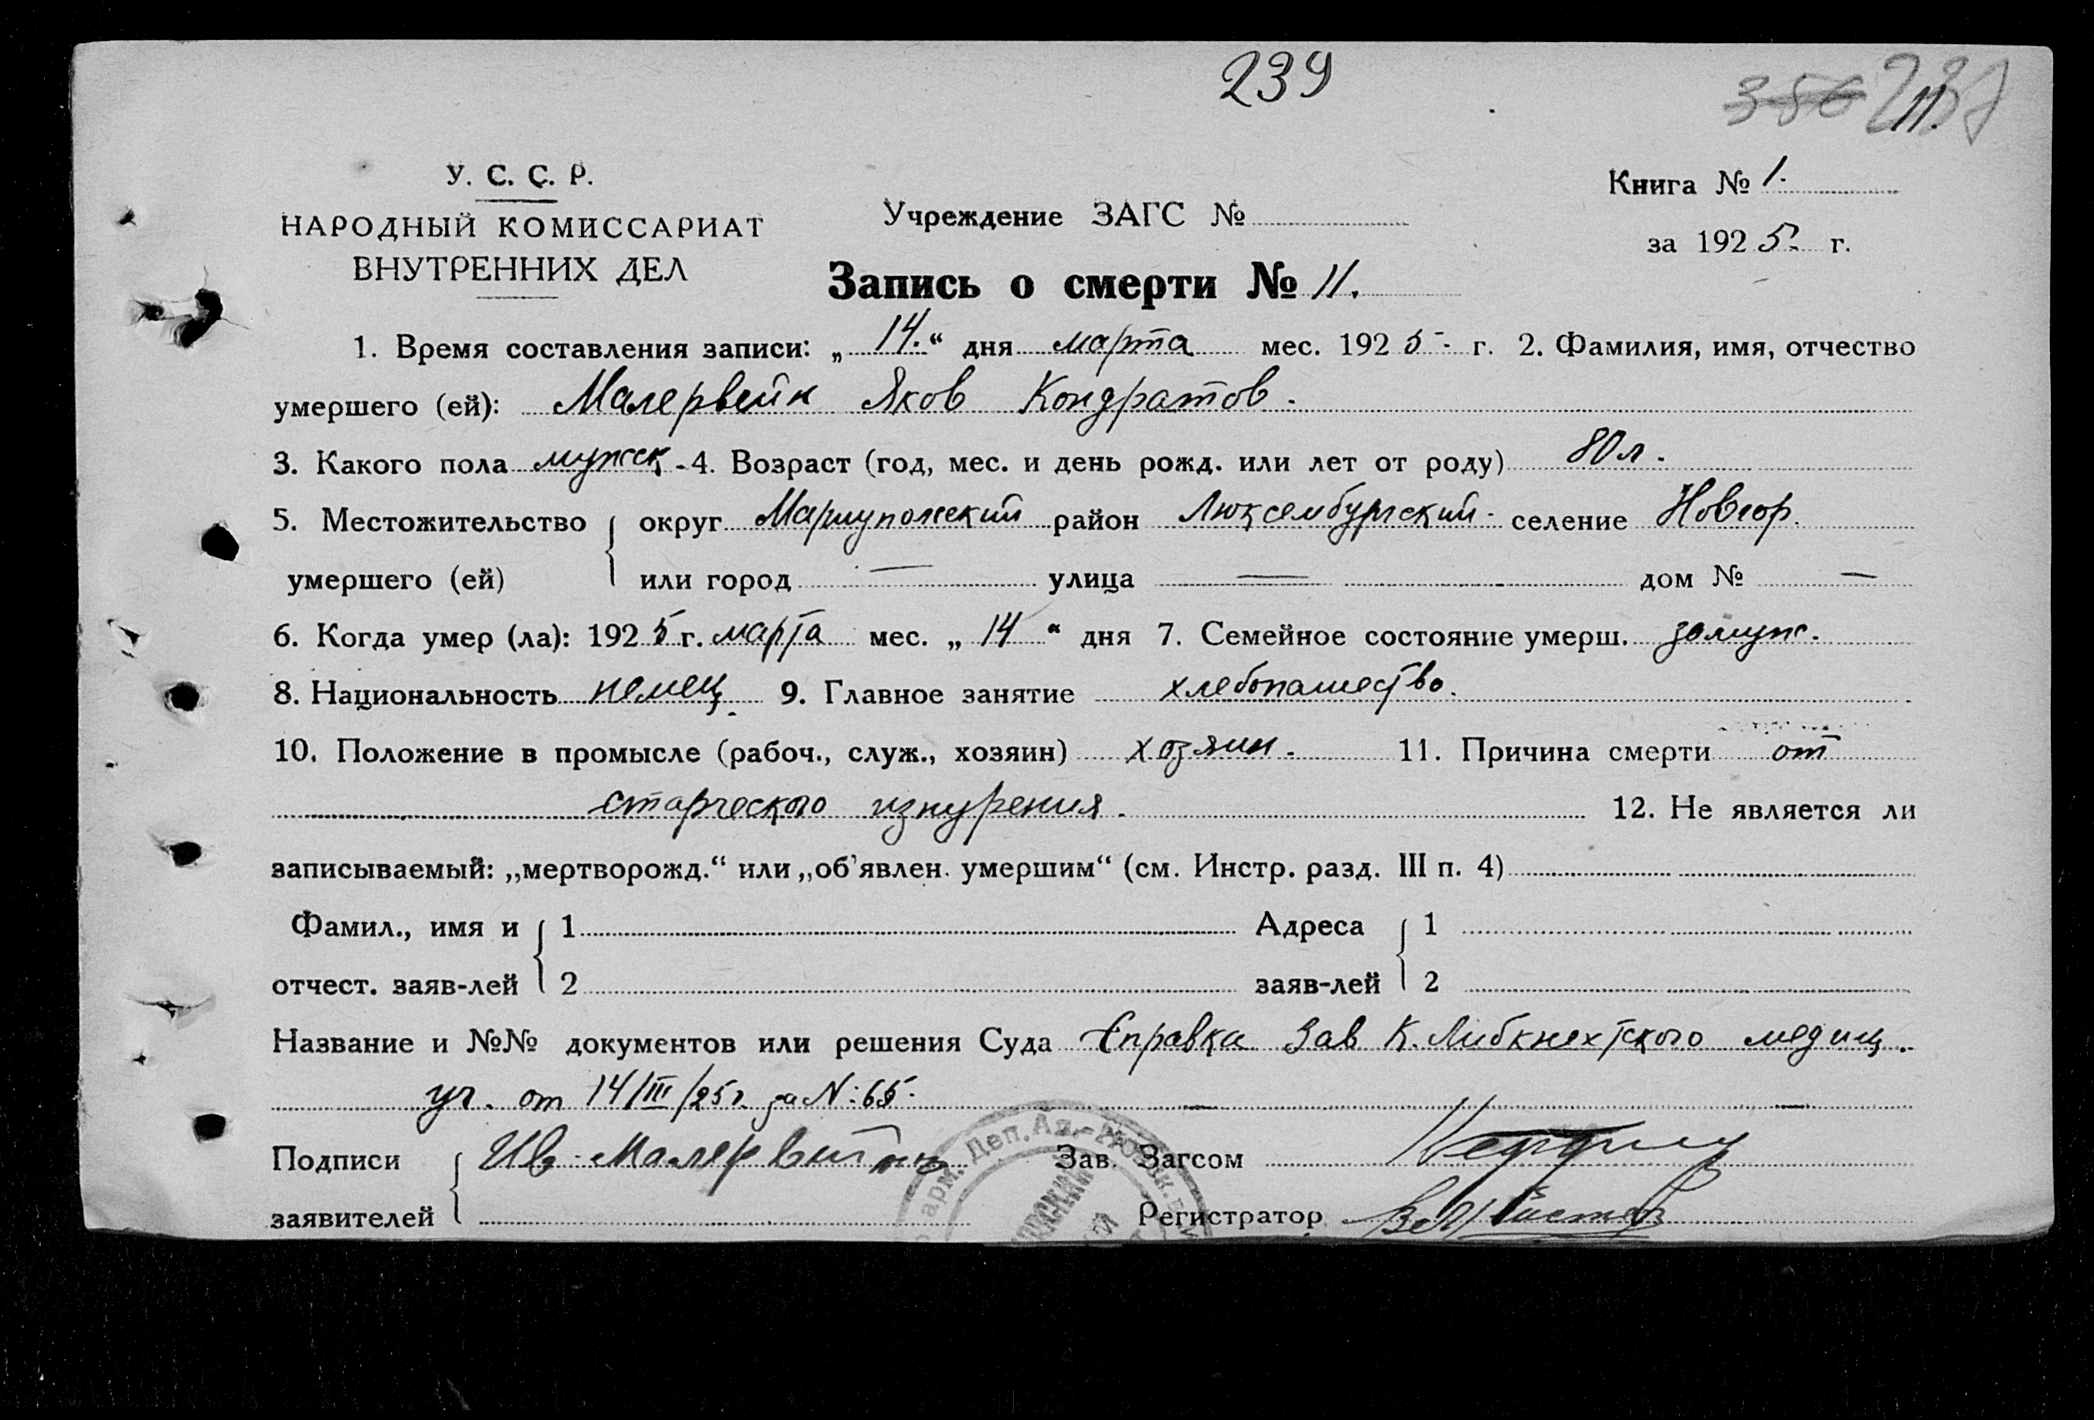 239
356 237
11.
У. С. С. Р.
НАРОДНЫЙ КОМИССАРИАТ
ВНУТРЕННИХ ДЕЛ
Учреждение ЗАГС №
Книга № 1.
за 1925 г.
Запись о смерти № 11.
1. Время составления записи: „14.“ дня марта мес. 1925 г. 2. Фамилия, имя, отчество
умершего (ей): Малервейн Яков Кондратов.
3. Какого пола мужск. 4. Возраст (год, мес. и день рожд. или лет от роду) 80 л.
5. Местожительство округ Мариупольский район Люксембургский селение Новгор.
умершего (ей) или город — улица — дом № —
6. Когда умер (ла): 1925 г. марта мес. „14“ дня 7. Семейное состояние умерш. замуж.
8. Национальность немец. 9. Главное занятие хлебопашество.
10. Положение в промысле (рабоч., служ., хозяин) хозяин. 11. Причина смерти от
старческого изнурения. 12. Не является ли
записываемый: „мертворожд.“ или „об'явлен. умершим“ (см. Инстр. разд. III п. 4)
Фамил., имя и 1 Адреса 1
отчест. заяв-лей 2 заяв-лей 2
Название и №№ документов или решения Суда Справка Зав К. Либкнехтского медиц.
уч. от 14/III/25 г. за N: 65.
Подписи Ив Малервейн Зав. Загсом
заявителей Регистратор